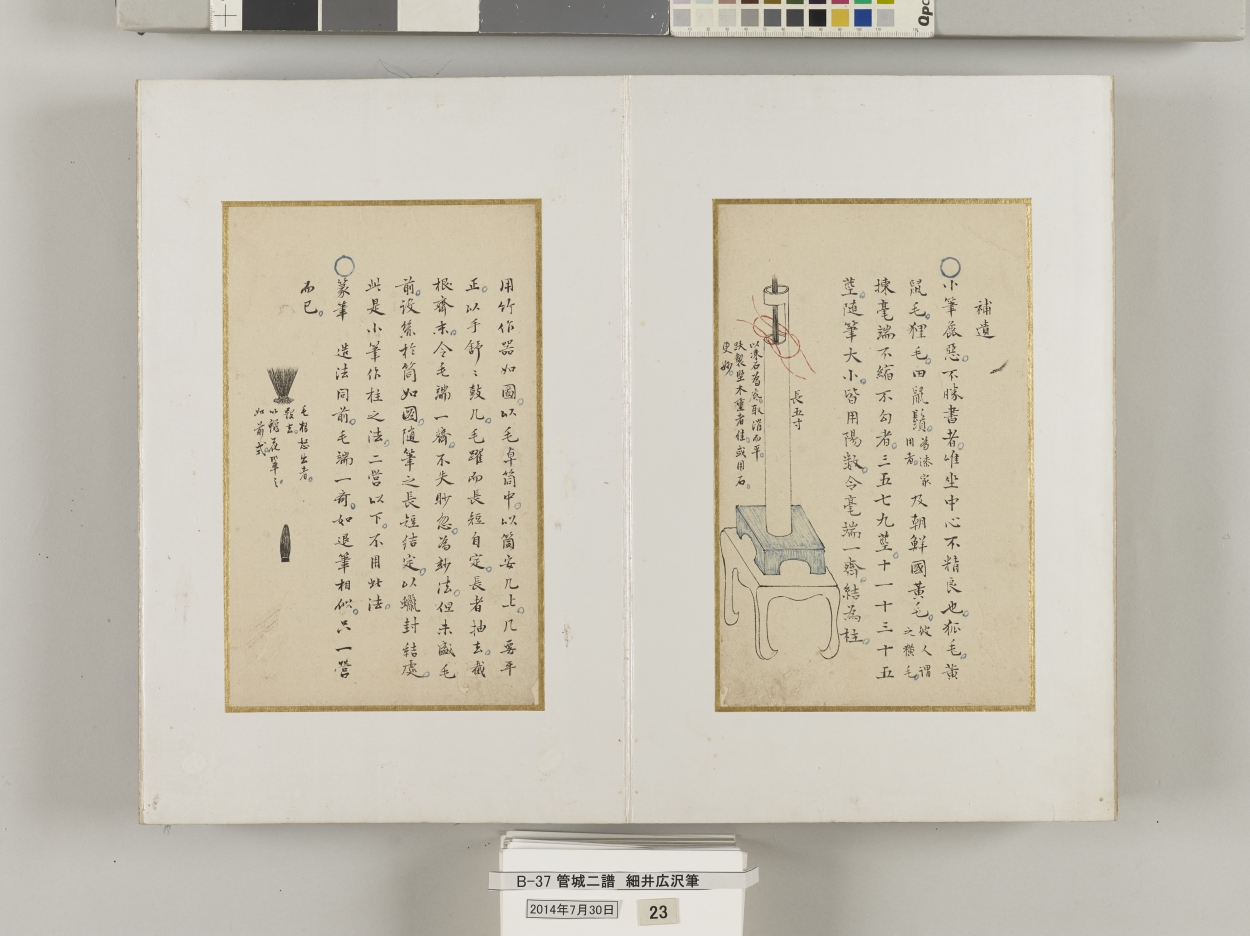 補遺
小筆最惡。不勝書者。唯坐中心不精良也。狐毛。黃
鼠毛。狸毛。田鼠鬚。為漆家用者。及朝鮮國黃毛。彼人謂之獷毛。
揀毫端不縮不勾者。三五七九莖。十一十三十五
莖。隨筆大小。皆用陽數。令毫端一齊。結為柱。
長五寸
以漆石為底。取消石平。
趺製堅木重者佳。或用石。
更妙。
用竹作器如圖。以毛卓筒中。以筒安几上。几要平
正。以手舒舒鼓几。毛躍而長短自定。長者抽去。截
根齊末。令毛端一齊。不失眇忽。為妙法。但未盛毛
前。設紮於筒如圖。隨筆之長短結定。以蠟封結處。
此是小筆作柱之法。二營以下。不用此法。
篆筆 造法同前。毛端一齊。如退筆相似。只一營
而已。
毛柱怒出者。
裁去。
如前式。
B-37 管城二譜 細井広沢筆
2014年7月30日
23